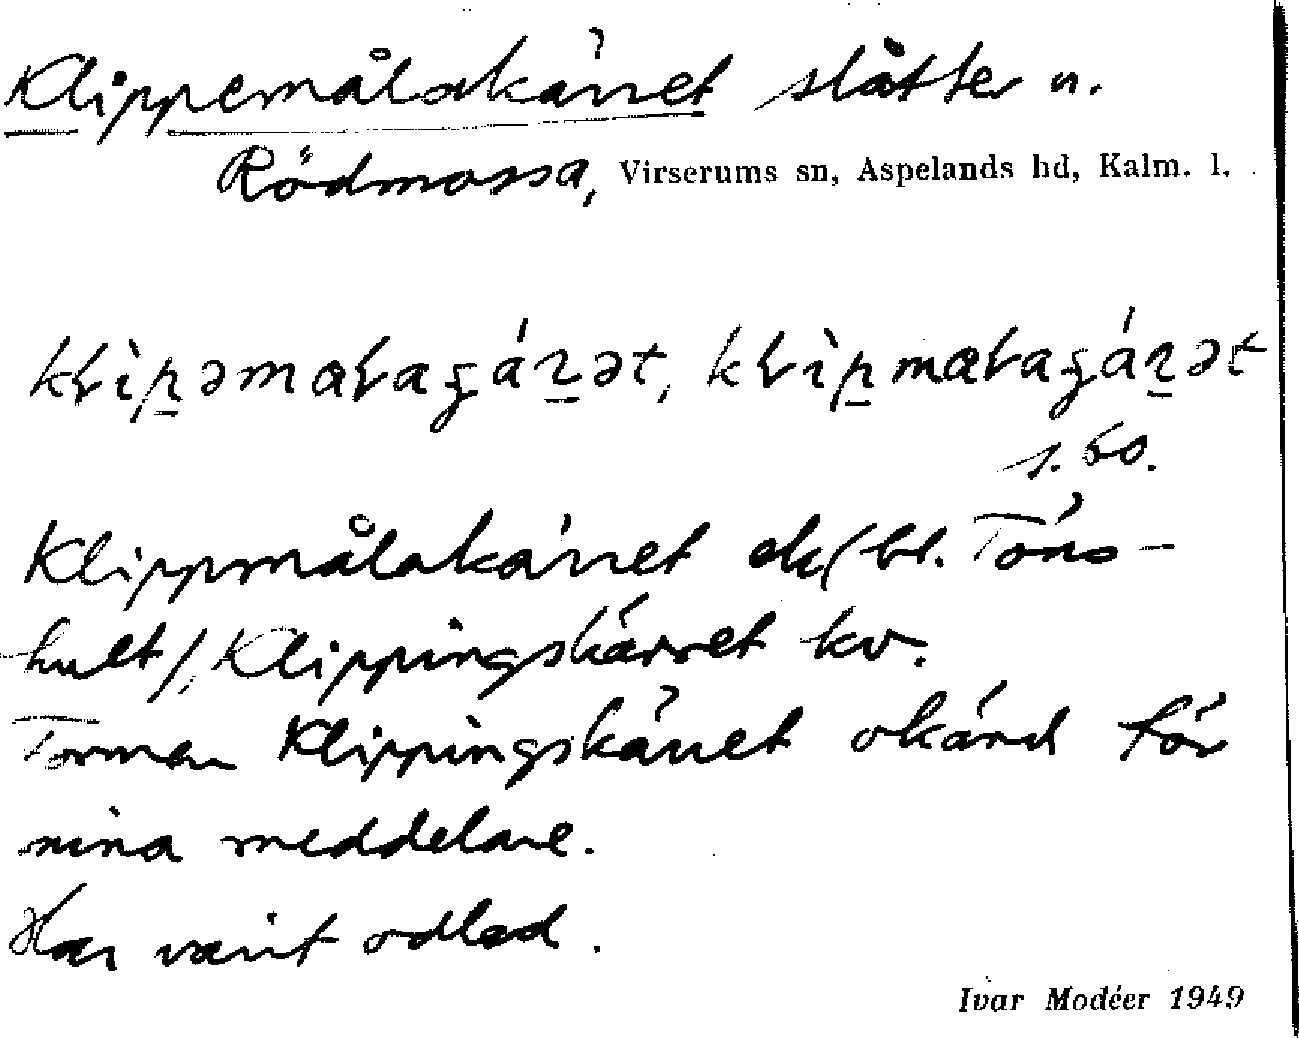 Klippemålakärret slåtter n.
Rödmossa, Virserums sn, Aspelands hd, Kalm. l.
s. 60.
Klippmålakärret ek (bl. Töns-
hult), Klippingskärret kv.
Formen Klippingskärret okänd för
mina meddelare.
Har varit odlad.
Ivar Modéer 1949